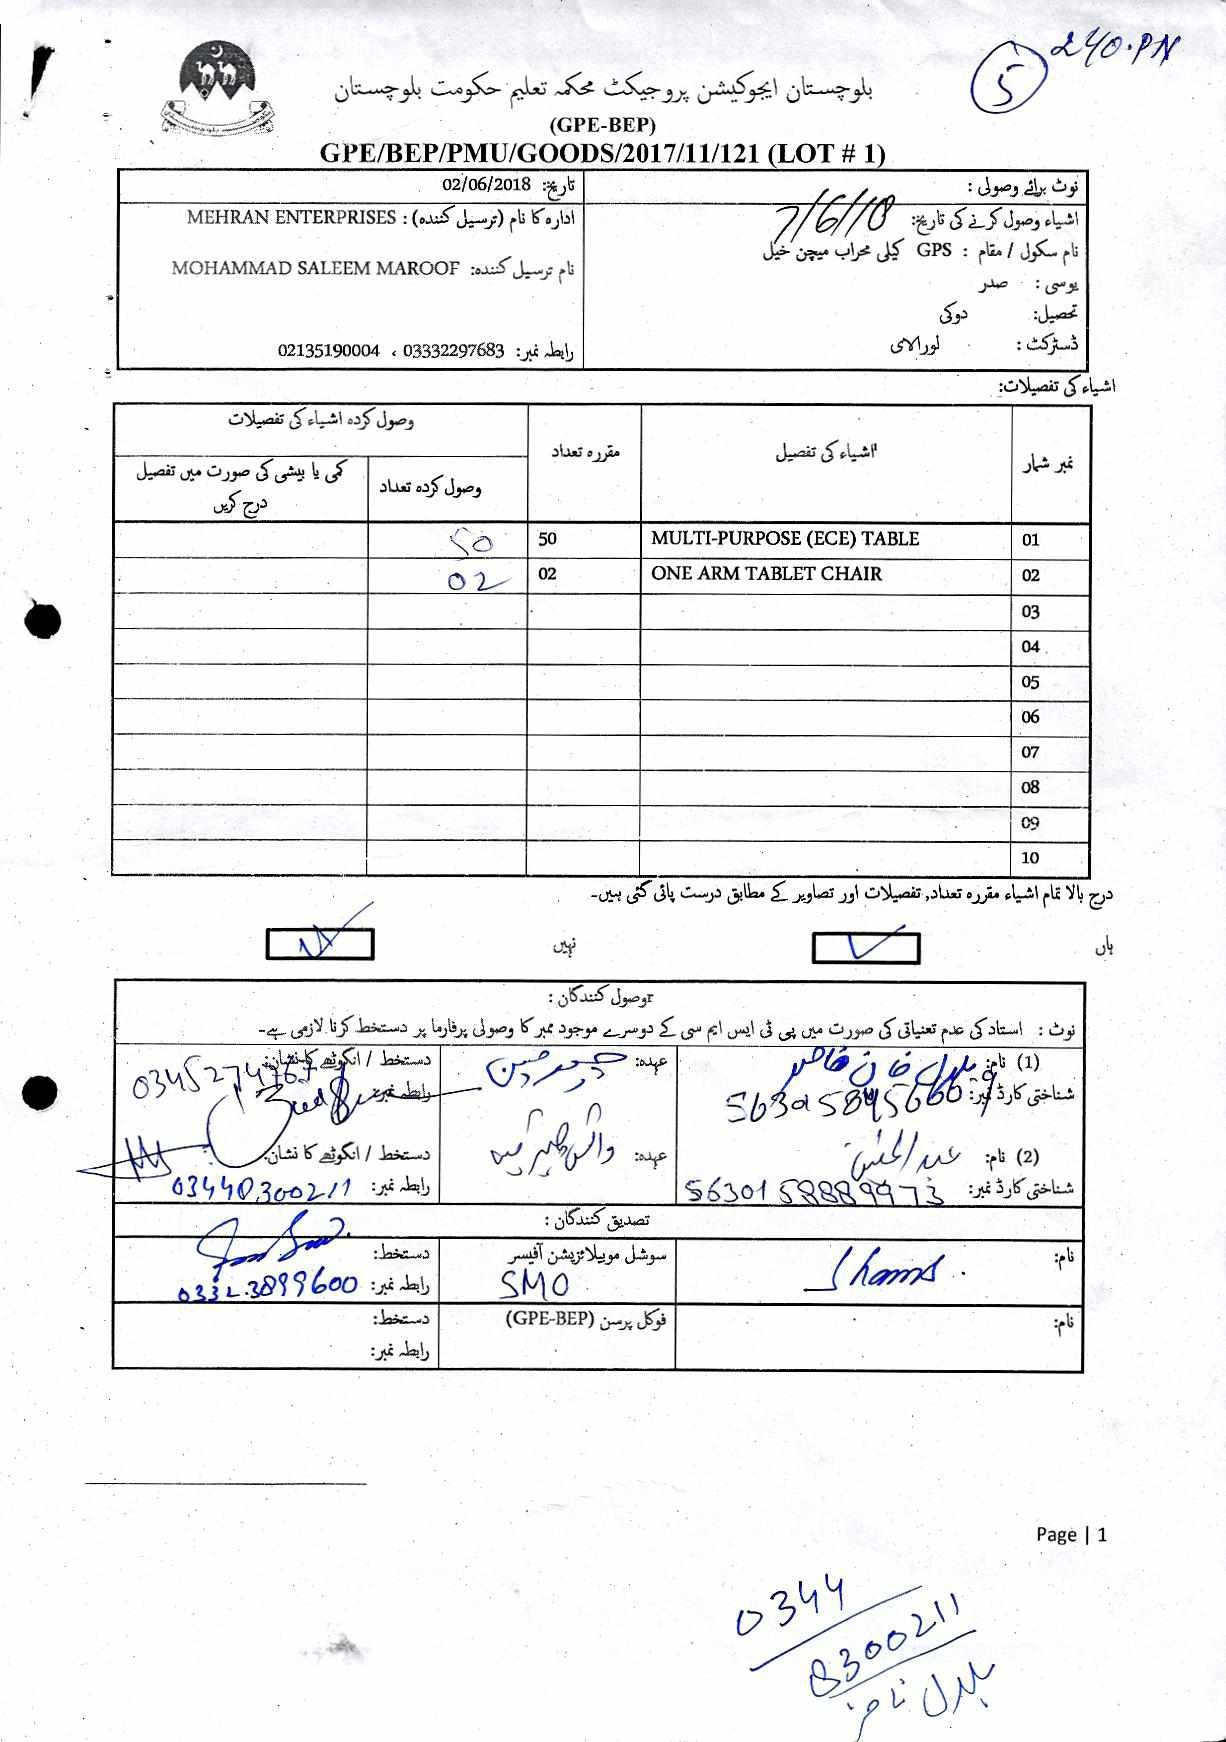 240.PN
5
بلوچستان ایجوکیشن پروجیکٹ محکمہ تعلیم حکومت بلوچستان
(GPE-BEP)
GPE/BEP/PMU/GOODS/2017/11/121 (LOT # 1)
نوٹ برائے وصولی :
اشیاء وصول کرنے کی تاریخ: 7/6/18
نام سکول / مقام : GPS کیلی محراب میچن خیل
یوسی : صدر
تحصیل: دوکی
ڈسٹرکٹ : لورالائی
تاریخ: 02/06/2018
ادارہ کا نام (ترسیل کنندہ) : MEHRAN ENTERPRISES
نام ترسیل کنندہ: MOHAMMAD SALEEM MAROOF
رابطہ نمبر: 03332297683 ، 02135190004
اشیاء کی تفصیلات:
نمبر شمار اشیاء کی تفصیل مقررہ تعداد وصول کردہ اشیاء کی تفصیلات
وصول کردہ تعداد کمی یا بیشی کی صورت میں تفصیل درج کریں
01 MULTI-PURPOSE (ECE) TABLE 50 50
02 ONE ARM TABLET CHAIR 02 02
03
04
05
06
07
08
09
10
درج بالا تمام اشیاء مقررہ تعداد, تفصیلات اور تصاویر کے مطابق درست پائی گئی ہیں۔
ہاں نہیں
وصول کنندگان :
نوٹ : استاد کی عدم تعنیاتی کی صورت میں پی ٹی ایس ایم سی کے دوسرے موجود ممبر کا وصولی پرفارما پر دستخط کرنا لازمی ہے۔
(1) نام: عہدہ: دستخط / انگوٹھے کا نشان:
شناختی کارڈ نمبر: رابطہ نمبر: 0345274767
(2) نام: عہدہ: دستخط / انگوٹھے کا نشان:
شناختی کارڈ نمبر: 5630158889973 رابطہ نمبر: 03448300211
تصدیق کنندگان :
نام: Shams سوشل موبیلائزیشن آفیسر SMO دستخط:
رابطہ نمبر: 0332.3899600
نام: فوکل پرسن (GPE-BEP) دستخط:
رابطہ نمبر:
Page | 1
0344
8300211